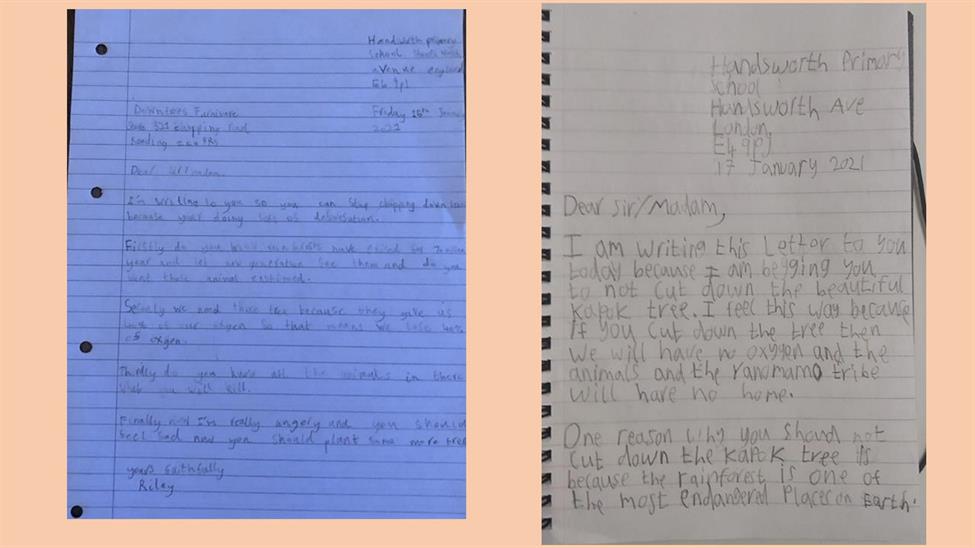 Handsworth primary
School
avenue england
E4 9pJ
Friday 15th
2021
Downtrees Furniture
321 chipping road
Reading
Dear
I'm writing to you so you can stop chopping down
because your doing lots of
Firstly do you know have existed for
year and let generation see them and do you
want those animal
we need those tree because they give us
of our oxgen so that means we lose
of oxgen.
Thirdly do you know all the in there
what you will kill.
Finally now I'm really angery and you should
feel sad now you should plant some more tree
yours faithfully
Riley
Handsworth Primary
School
Handsworth Ave
London,
E4 9PJ
17 January 2021
Dear Sir/Madam,
I am writing this letter to you
today because I am begging you
to not cut down the beautiful
Kapok tree. I feel this way because
if you cut down the tree then
we will have no oxygen and the
animals and the yanomamo tribe
will have no home.
One reason why you should not
cut down the Kapok tree is
because the rainforest is one of
the most endangered places on Earth.